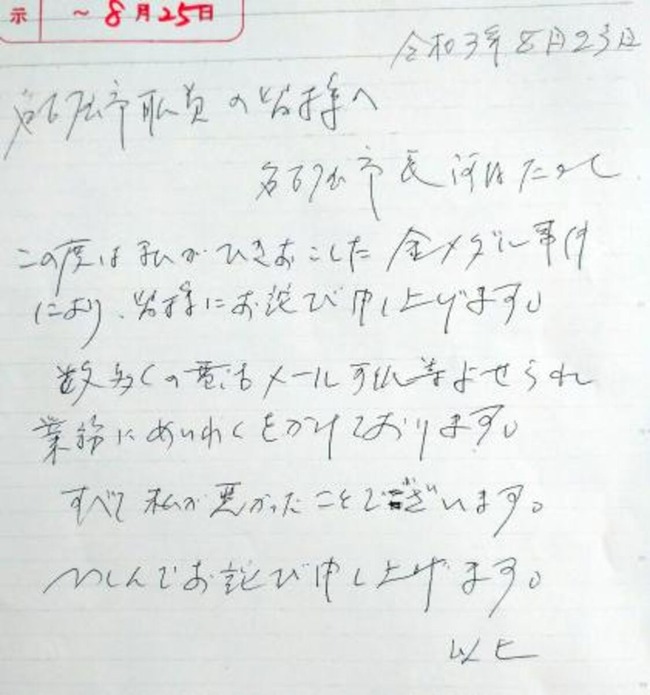 示 ～8月25日
令和3年8月23日
名古屋市職員の皆様へ
名古屋市長河村たかし
この度は私がひきおこした金メダル事件
により、皆様にお詫び申し上げます。
数多くの電話メール手紙等よせられ
業務にめいわくをかけております。
すべて私が悪かったことでございます。
つつしんでお詫び申し上げます。
以上